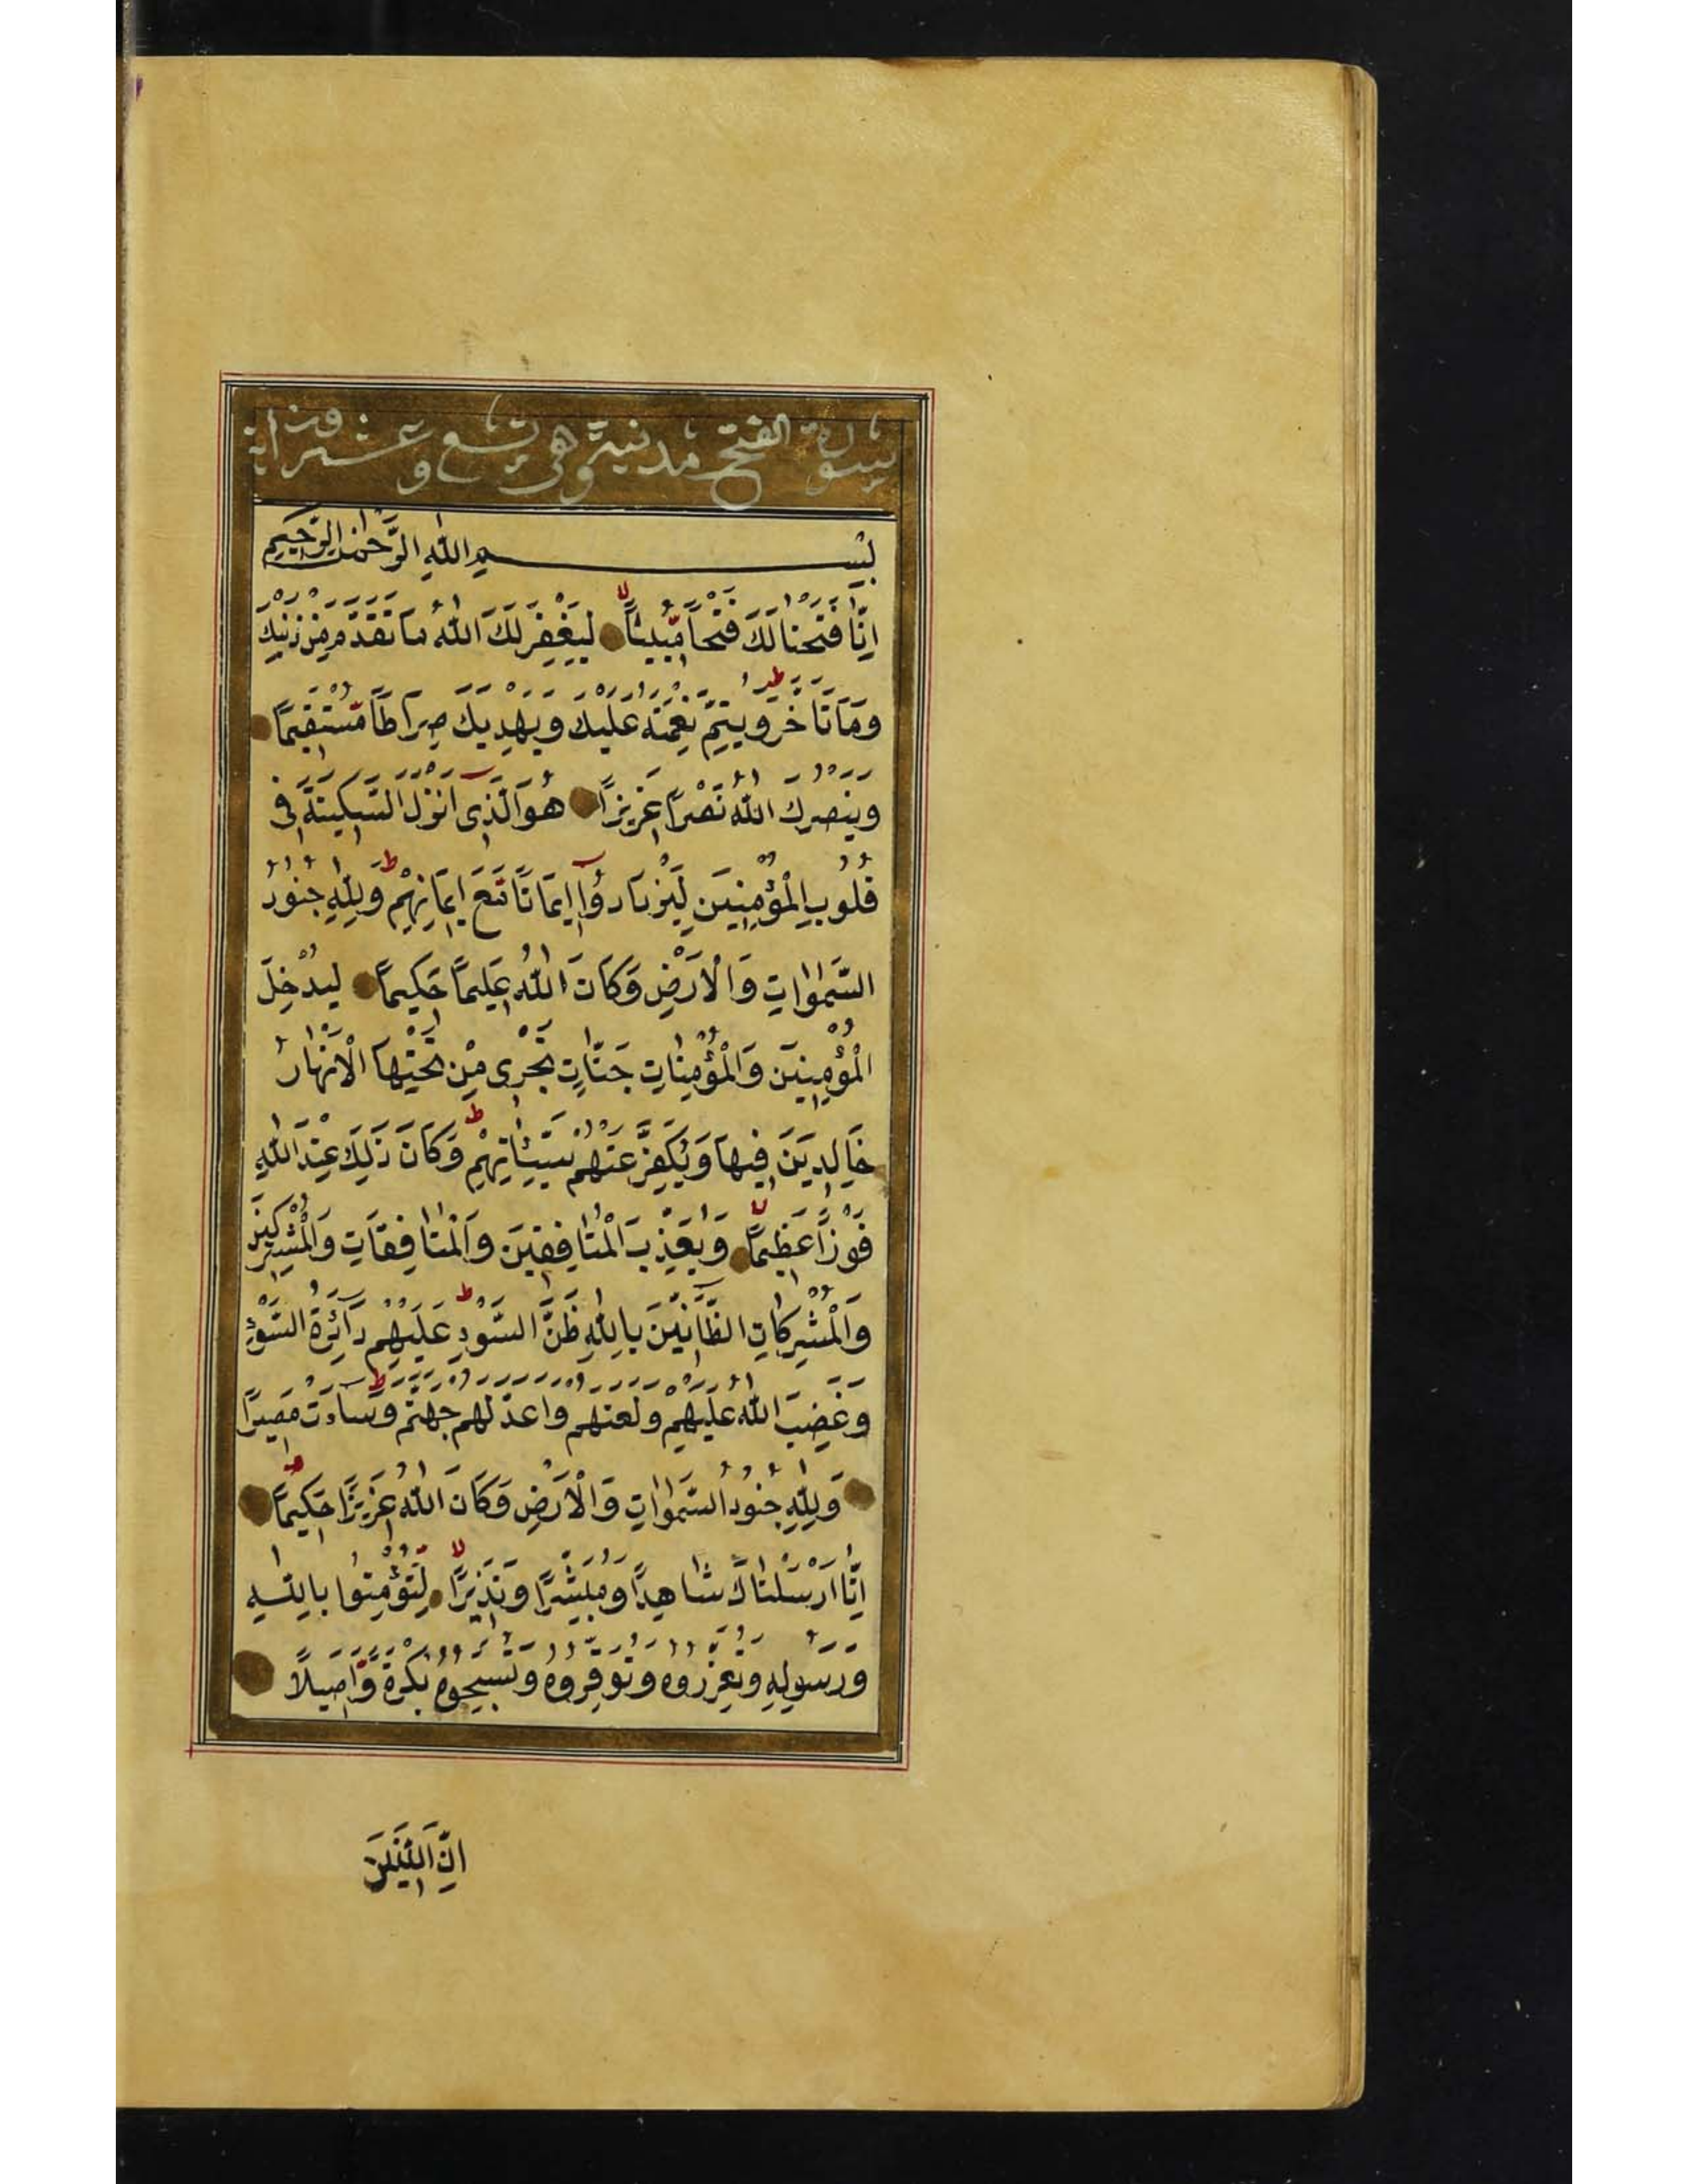 سورة الفتح مدنية وهي تسع وعشرون اية
بِسْمِ اللّٰهِ الرَّحْمٰنِ الرَّحِيمِ
اِنَّا فَتَحْنَا لَكَ فَتْحًا مُّبِينًا لا لِيَغْفِرَ لَكَ اللّٰهُ مَا تَقَدَّمَ مِنْ ذَنْبِكَ
وَمَا تَاَخَّرَ ط وَيُتِمَّ نِعْمَتَهُ عَلَيْكَ وَيَهْدِيَكَ صِرَاطًا مُّسْتَقِيمًا
وَيَنْصُرَكَ اللّٰهُ نَصْرًا عَزِيزًا هُوَ الَّذِى اَنْزَلَ السَّكِينَةَ فِى
قُلُوبِ الْمُؤْمِنِينَ لِيَزْدَادُوٓا اِيمَانًا مَّعَ اِيمَانِهِمْ ط وَلِلّٰهِ جُنُودُ
السَّمٰوَاتِ وَالْاَرْضِ وَكَانَ اللّٰهُ عَلِيمًا حَكِيمًا لِيُدْخِلَ
الْمُؤْمِنِينَ وَالْمُؤْمِنَاتِ جَنَّاتٍ تَجْرِى مِنْ تَحْتِهَا الْاَنْهَارُ
خَالِدِينَ فِيهَا وَيُكَفِّرَ عَنْهُمْ سَيِّئَاتِهِمْ ط وَكَانَ ذٰلِكَ عِنْدَ اللّٰهِ
فَوْزًا عَظِيمًا لا وَيُعَذِّبَ الْمُنَافِقِينَ وَالْمُنَافِقَاتِ وَالْمُشْرِكِينَ
وَالْمُشْرِكَاتِ الظَّآنِّينَ بِاللّٰهِ ظَنَّ السَّوْءِ ط عَلَيْهِمْ دَآئِرَةُ السَّوْءِ
وَغَضِبَ اللّٰهُ عَلَيْهِمْ وَلَعَنَهُمْ وَاَعَدَّ لَهُمْ جَهَنَّمَ ط وَسَآءَتْ مَصِيرًا
وَلِلّٰهِ جُنُودُ السَّمٰوَاتِ وَالْاَرْضِ وَكَانَ اللّٰهُ عَزِيزًا حَكِيمًا
اِنَّا اَرْسَلْنَاكَ شَاهِدًا وَمُبَشِّرًا وَنَذِيرًا لا لِتُؤْمِنُوا بِاللّٰهِ
وَرَسُولِهِ وَتُعَزِّرُوهُ وَتُوَقِّرُوهُ وَتُسَبِّحُوهُ بُكْرَةً وَّاَصِيلًا
اِنَّ الَّذِينَ